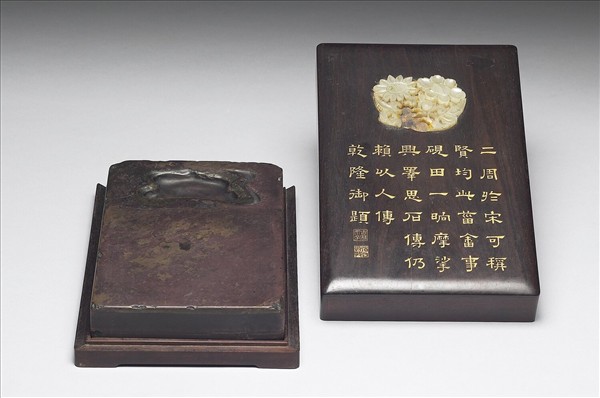 二周於宋可稱
賢均此菑畬事
硯田一晌摩挲
興羣思石傳仍
賴以人傳
乾隆御題